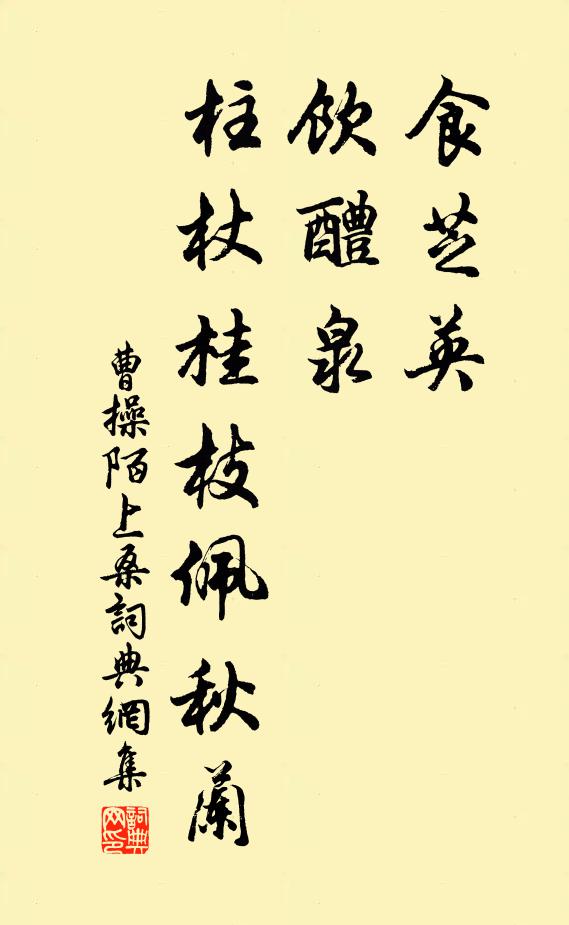 食芝英
飲醴泉
柱杖桂枝佩秋蘭
曹操陌上桑詞典網集
詞典
网印